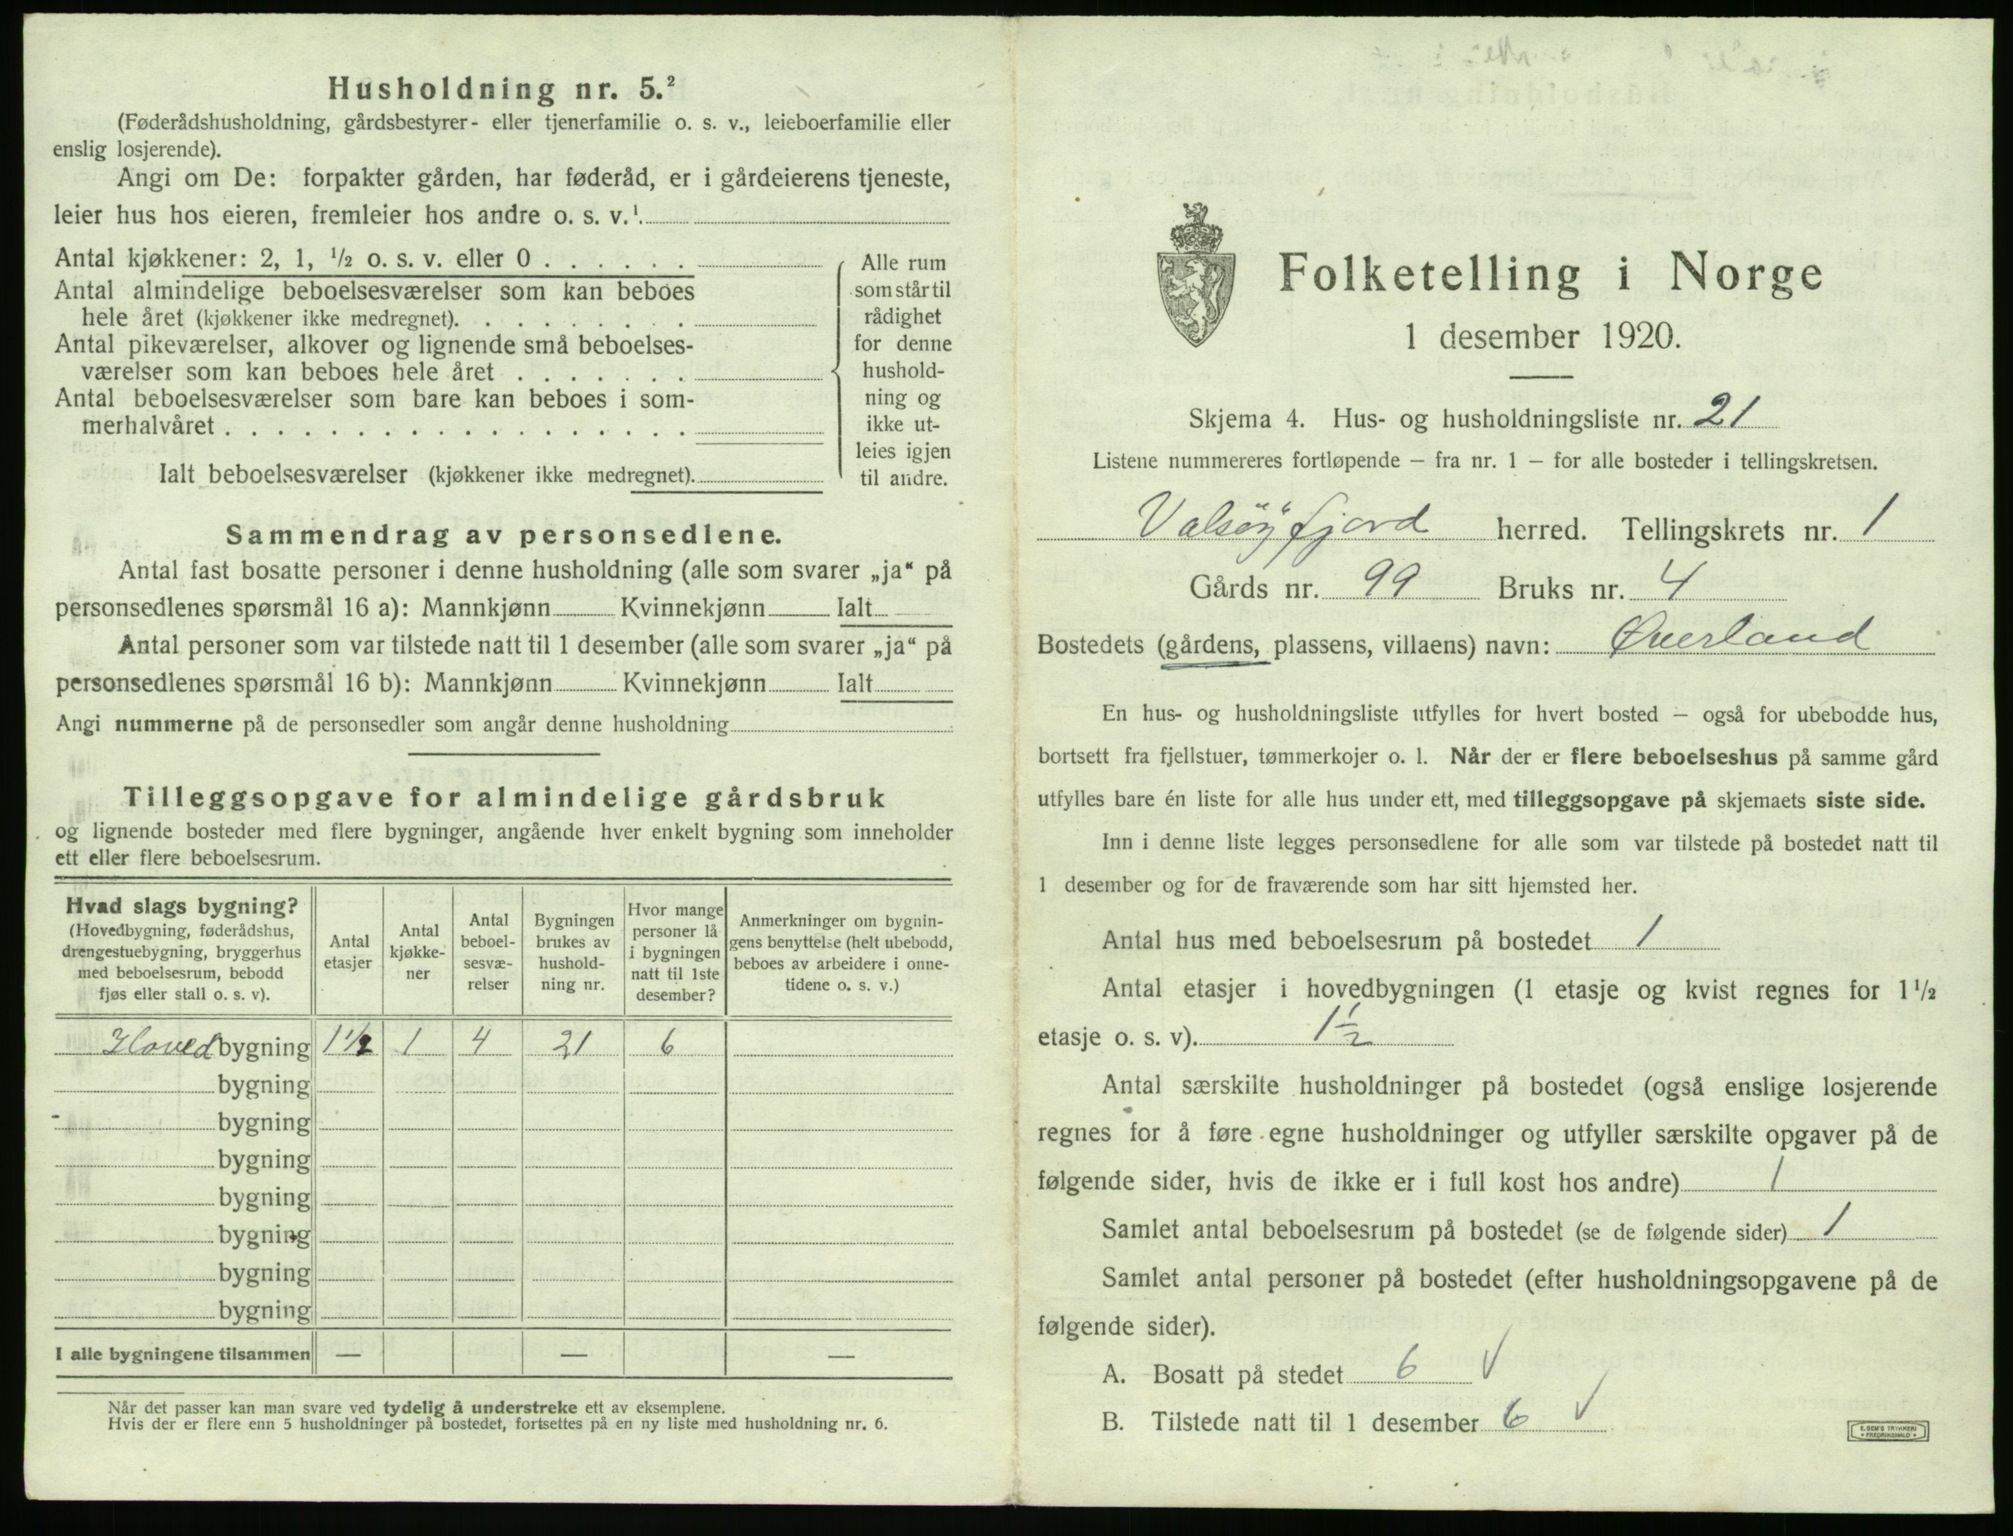 Husholdning nr. 5.²
(Føderådshusholdning, gårdsbestyrer- eller tjenerfamilie o. s. v., leieboerfamilie eller
enslig losjerende).
Angi om De: forpakter gården, har føderåd, er i gårdeierens tjeneste,
leier hus hos eieren, fremleier hos andre o. s. v.¹
Antal kjøkkener: 2, 1, ½ o. s. v. eller 0 . . . . . .
Antal almindelige beboelsesværelser som kan beboes
hele året (kjøkkener ikke medregnet). . . . . . . . .
Antal pikeværelser, alkover og lignende små beboelses-
værelser som kan beboes hele året . . . . . . .
Antal beboelsesværelser som bare kan beboes i som-
merhalvåret . . . . . . . . . . . . . . . . . .
Ialt beboelsesværelser (kjøkkener ikke medregnet).
Alle rum
som står til
rådighet
for denne
hushold-
ning og
ikke ut-
leies igjen
til andre.
Sammendrag av personsedlene.
Antal fast bosatte personer i denne husholdning (alle som svarer „ja“ på
personsedlenes spørsmål 16 a): Mannkjønn Kvinnekjønn Ialt
Antal personer som var tilstede natt til 1 desember (alle som svarer „ja“ på
personsedlenes spørsmål 16 b): Mannkjønn Kvinnekjønn Ialt
Angi nummerne på de personsedler som angår denne husholdning
Tilleggsopgave for almindelige gårdsbruk
og lignende bosteder med flere bygninger, angående hver enkelt bygning som inneholder
ett eller flere beboelsesrum.
Hvad slags bygning?
(Hovedbygning, føderådshus,
drengestuebygning, bryggerhus
med beboelsesrum, bebodd
fjøs eller stall o. s. v).
Antal
etasjer
Antal
kjøkke-
ner
Antal
beboel-
sesvæ-
relser
Bygningen
brukes av
hushold-
ning nr.
Hvor mange
personer lå
i bygningen
natt til 1ste
desember?
Anmerkninger om bygnin-
gens benyttelse (helt ubebodd,
beboes av arbeidere i onne-
tidene o. s. v.)
Hovedbygning 1½ 1 4 21 6
bygning
bygning
bygning
bygning
bygning
bygning
bygning
I alle bygningene tilsammen — — —
Når det passer kan man svare ved tydelig å understreke ett av eksemplene.
Hvis der er flere enn 5 husholdninger på bostedet, fortsettes på en ny liste med husholdning nr. 6.
Folketelling i Norge
1 desember 1920.
Skjema 4. Hus- og husholdningsliste nr. 21
Listene nummereres fortløpende – fra nr. 1 – for alle bosteder i tellingskretsen.
Valsøyfjord herred. Tellingskrets nr. 1
Gårds nr. 99 Bruks nr. 4
Bostedets (gårdens, plassens, villaens) navn: Øverland
En hus- og husholdningsliste utfylles for hvert bosted – også for ubebodde hus,
bortsett fra fjellstuer, tømmerkojer o. l. Når der er flere beboelseshus på samme gård
utfylles bare én liste for alle hus under ett, med tilleggsopgave på skjemaets siste side.
Inn i denne liste legges personsedlene for alle som var tilstede på bostedet natt til
1 desember og for de fraværende som har sitt hjemsted her.
Antal hus med beboelsesrum på bostedet 1
Antal etasjer i hovedbygningen (1 etasje og kvist regnes for 1½
etasje o. s. v). 1½
Antal særskilte husholdninger på bostedet (også enslige losjerende
regnes for å føre egne husholdninger og utfyller særskilte opgaver på de
følgende sider, hvis de ikke er i full kost hos andre) 1
Samlet antal beboelsesrum på bostedet (se de følgende sider) 1
Samlet antal personer på bostedet (efter husholdningsopgavene på de
følgende sider).
A. Bosatt på stedet 6 √
B. Tilstede natt til 1 desember 6 √
E. SEM'S TRYKKERI
FREDRIKSHALD